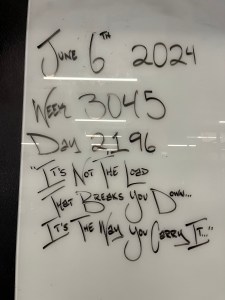 June 6th 2024
Week 3045
Day 2196
"It's Not The Load
That Breaks You Down...
It's The Way You Carry It..."